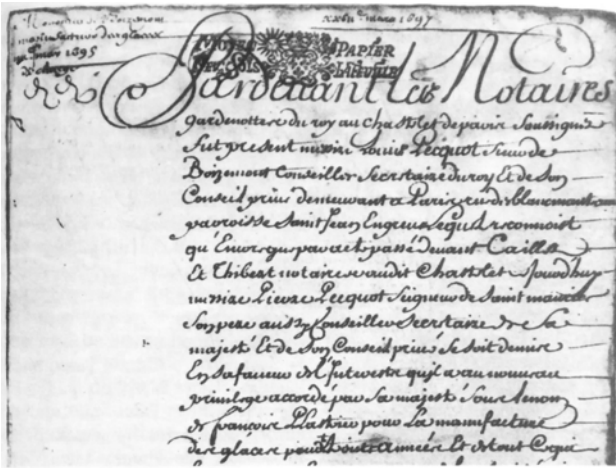 xxbiii mars 1697
manufacture des glaces
mars 1695
MOYEN PAPIER
Pardevant Les Notaires
gardenottes du roy au Chastelet de paris Soussignés
fut present Louis Pecquot Sieur de
Boizemont Conseiller Secretaire du roy Et de Son
Conseil privé demeurant a Paris rue des blancmanteaux
parroisse Saint Jean En greve Lequel reconnoist
qu'Encores que par acte passé devant Caillet
Et Thibert notaires audit Chastelet Jourdhuy
Pierre Pecquot Seigneur de Saint maurice
Son pere aussy Conseiller Secretaire de Sa
majesté Et de Son Conseil privé Se Soit demis
En Sa faveur de l'Interestz qu'il a au nouveau
privilege accordé par Sa majesté Sous le nom
de françois Plastrier pour La manufacture
des glaces pour Et tout Ce qui